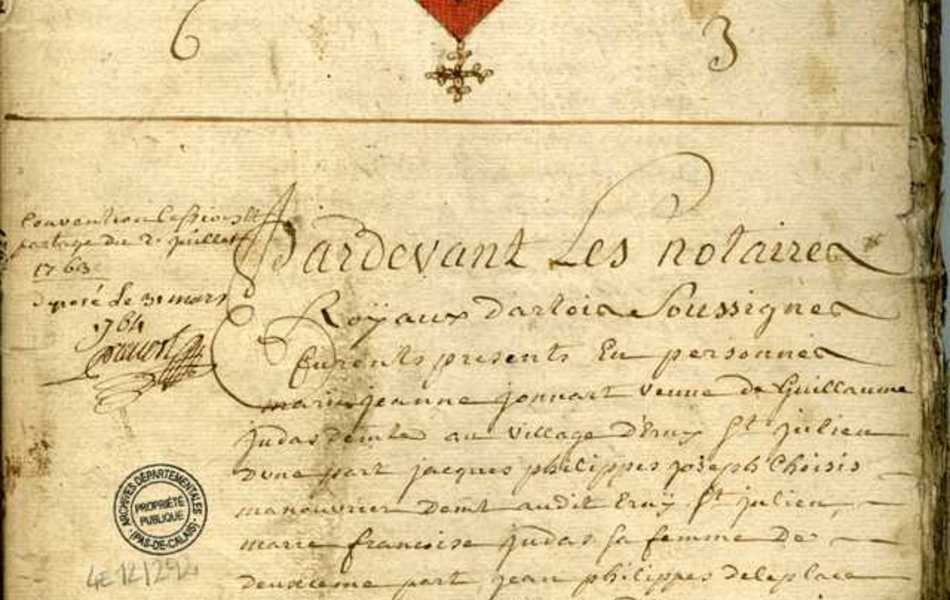 6 3
Convention
partage du 2. juillet
1763
déposé Le 31 mars
1764
Pardevant Les notaires
Royaux dartois Soussignes
furents presents En personnes
marie jeanne jonnart veuve de Guillaume
judas demte au village d'Eruy St julien
dune part jacques philippes joseph Choisis
manouvrier demt audit Eruÿ St julien,
marie francoise judas sa femme De
deuxieme part jean philippes deleplace
ARCHIVES DÉPARTEMENTALES
PROPRIÉTÉ
PUBLIQUE
(PAS-DE-CALAIS)
4E 121/294